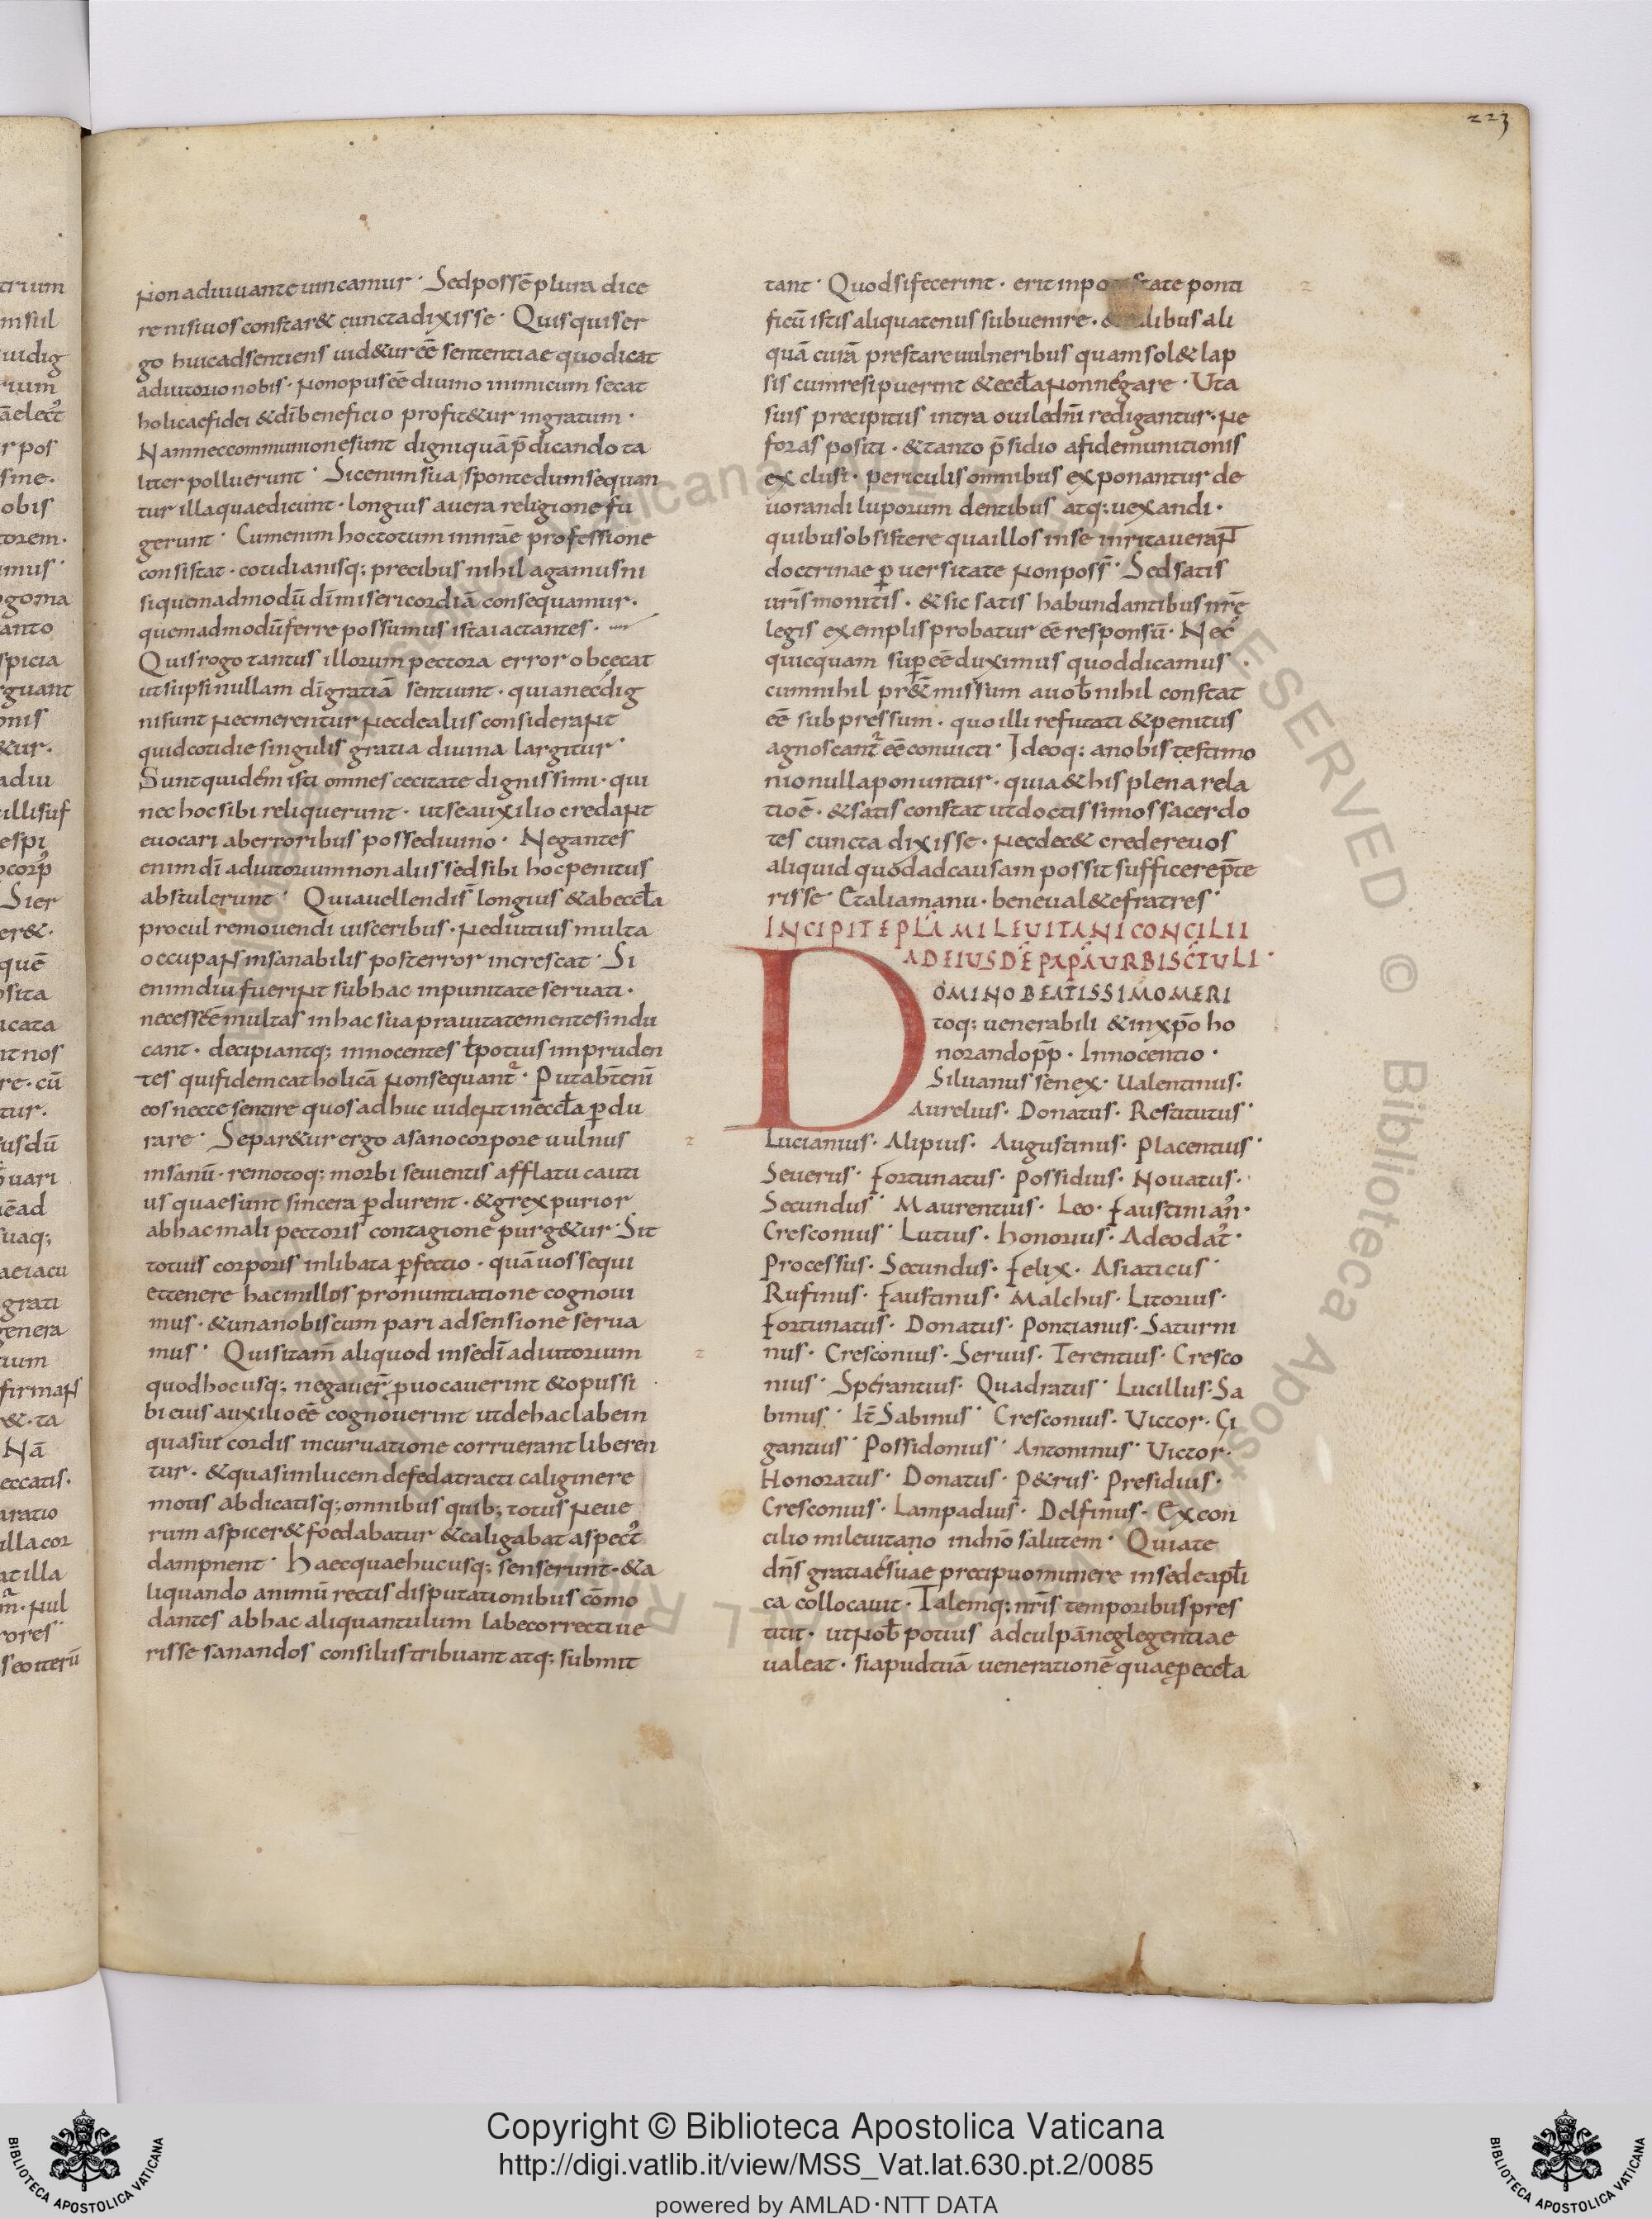 223
Non adiuuante uincamur · Sed possē plura dice
re nisi uos constar& cuncta dixisse · Quisquis er
go huic adsentiens uid&ur eē sententiae quo dicat
adiutorio nobis · Non opus eē diuino inimicum se cat
holicae fidei & dī beneficio profit&ur ingratum ·
Nam nec communione sunt digni quā p̄dicando ta
liter polluerunt · Sic enim sua sponte dum sequun
tur illa quae dicunt · longius a uera religione fu
gerunt · Cum enim hoc totum in nr̄ae professione
consistat · cotidianisq; precibus nihil agamus ni
si quemadmodū dī misericordiā consequamur ·
quemadmodū ferre possumus ista iactantes ·
Quis rogo tantus illorum pectora error obcecat
ut si ipsi nullam dī gratiā sentiunt · quia nec dig
ni sunt Nec merentur Nec de aliis considerant
quid cotidie singulis gratia diuina largitur ·
Sunt quidem isti omnes cecitate dignissimi · qui
nec hoc sibi reliquerunt · ut se auxilio credant
euocari ab erroribus posse diuino · Negantes
enim dī adiutorium non aliis sed sibi hoc penitus
abstulerunt · Qui auellendi s̄ longius & ab eccƚa
procul remouendi uisceribus · Ne diutius multa
occupans insanabilis post error increscat · Si
enim diu fuerint sub hac inpunitate seruati ·
necesse ē multas in hac sua prauitate mentes indu
cant · decipiantq; innocentes ƚ potius impruden
tes qui fidem catholicā Non sequant᷑ · Putab̄t enī
eos necte sentire quos adhuc uident in eccƚa ꝑdu
rare · Separ&ur ergo a sano corpore uulnus
insanū · remotoq; morbi seuientis afflatu cauti
us quae sunt sincera ꝑdurent · & grex purior
ab hac mali pectoris contagione purg&ur · Sit
totius corporis inlibata ꝑfectio · quā uos sequi
et tenere hac in illos pronuntiatione cognoui
mus · & una nobiscum pari adsensione serua
mus · Qui si tam̄ aliquod in se dī adiutorium
quod hocusq; negauer̄ puocauerint & opus si
bi eius auxilio eē cognouerint ut de hac labe in
qua sui cordis incuruatione corruerant liberen
tur · & quasi in lucem de feda tracti caligine re
motis abdicatisq; omnibus quib; totus Ne ue
rum aspicer& foedabatur & caligabat aspect᷒
dampnent · Haec quae hucusq; senserunt · & a
liquando animū rectis disputationibus cōmo
dantes ab hac aliquantulum labe correcti ue
risse sanandos consiliis tribuant atq; submit
tant · Quod si fecerint · erit in potestate ponti
ficū istis aliquatenus subuenire · & talibus ali
quā curā prestare uulneribus quam sol& lap
sis cum resipuerint & eccƚa Non negare · Ut a
suis precipitiis intra ouile dn̄i redigantur · Ne
foras positi · & tanto p̄sidio a fide munitionis
exclusi · periculis omnibus exponantur de
uorandi luporum dentibus atq; uexandi ·
quibus obsistere qua illos in se inritauerant
doctrinae ꝑuersitate Non poss̄ · Sed satis
uris̄ monitis · & sic satis habundantibus nr̄ę
legis exemplis probatur eē responsū · Nec
quicquam suꝑ eē duximus quod dicamus ·
cum nihil pr&̄missum a uob̄ nihil constat
eē subpressum · quo illi refutati & penitus
agnoscant᷑ eē conuicti · Ideoq; a nobis testimo
nio nulla ponuntur · quia & his plena rela
tio ē · & satis constat ut doctissimos sacerdo
tes cuncta dixisse · Nec dec& credere uos
aliquid quod ad causam possit sufficere p̄te
risse Et alia manu · bene ual&e fratres ·
INCIPIT EPLĀ MILEUITANI CONCILII
AD EIUSDĒ PAPĀ URBIS CIULI ·
DOMINO BEATISSIMO MERI
toq; uenerabili & in xp̄o ho
norando pp̄ · Innocentio ·
Siluanus senex · Ualentinus ·
Aurelius · Donatus · Restitutus ·
Lucianus · Alipius · Augustinus · Placentius ·
Seuerus · Fortunatus · Possidius · Nouatus ·
Secundus · Maurentius · Leo · Faustinian᷒ ·
Cresconius · Lutius · Honorius · Adeodat᷒ ·
Processus · Secundus · Felix · Asiaticus ·
Rufinus · Faustinus · Malchus · Litorius ·
Fortunatus · Donatus · Pontianus · Saturni
nus · Cresconius · Seruus · Terentius · Cresco
nius · Sperantius · Quadratus · Lucillus · Sa
binus · It̄ Sabinus · Cresconius · Uictor · Gi
gantius · Possidonius · Antoninus · Uictor ·
Honoratus · Donatus · P&rus · Presidius ·
Cresconius · Lampadius · Delfinus · Ex con
cilio mileuitano in dn̄o salutem · Quia te
dn̄s gratiae suae precipuo munere in sede apƚi
ca collocauit · Talemq; nr̄is temporibus pres
titit · ut Nob̄ potius ad culpā neglegentiae
ualeat · si apud tuā uenerationē quae ꝑ eccƚa
Copyright © Biblioteca Apostolica Vaticana
http://digi.vatlib.it/view/MSS_Vat.lat.630.pt.2/0085
powered by AMLAD·NTT DATA
BIBLIOTECA APOSTOLICA VATICANA
BIBLIOTECA APOSTOLICA VATICANA